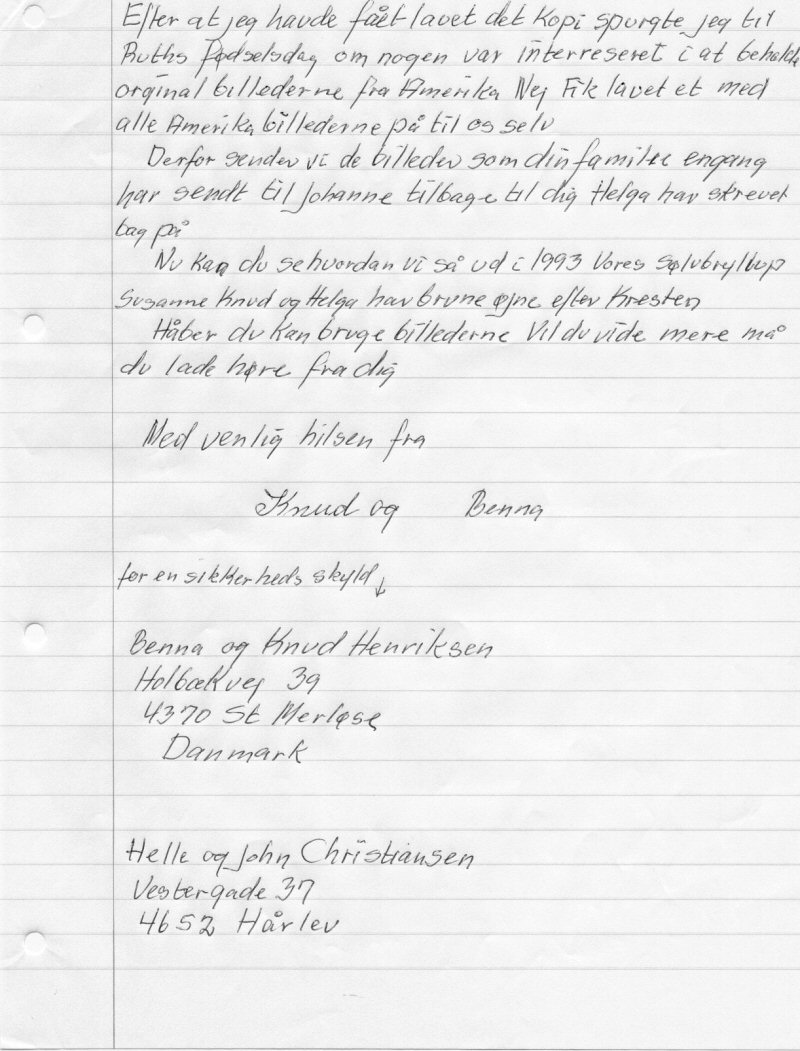 Efter at jeg havde fået lavet det Kopi spurgte jeg til
Ruths Fødselsdag om nogen var interreseret i at beholde
orginal billederne fra Amerika Nej Fik lavet et med
alle Amerika billederne på til os selv
Derfor sender vi de billeder som din familie engang
har sendt til Johanne tilbage til dig Helga har skrevet
bag på
Nu kan du se hvordan vi så ud i 1993 Vores Sølvbryllup
Susanne Knud og Helga har brune øjne efter Kresten
Håber du kan bruge billederne Vil du vide mere må
du lade høre fra dig
Med venlig hilsen fra
Knud og Benna
for en sikkerheds skyld ↓
Benna og Knud Henriksen
Holbækvej 39
4370 St Merløse
Danmark
Helle og John Christiansen
Vestergade 37
4652 Hårlev